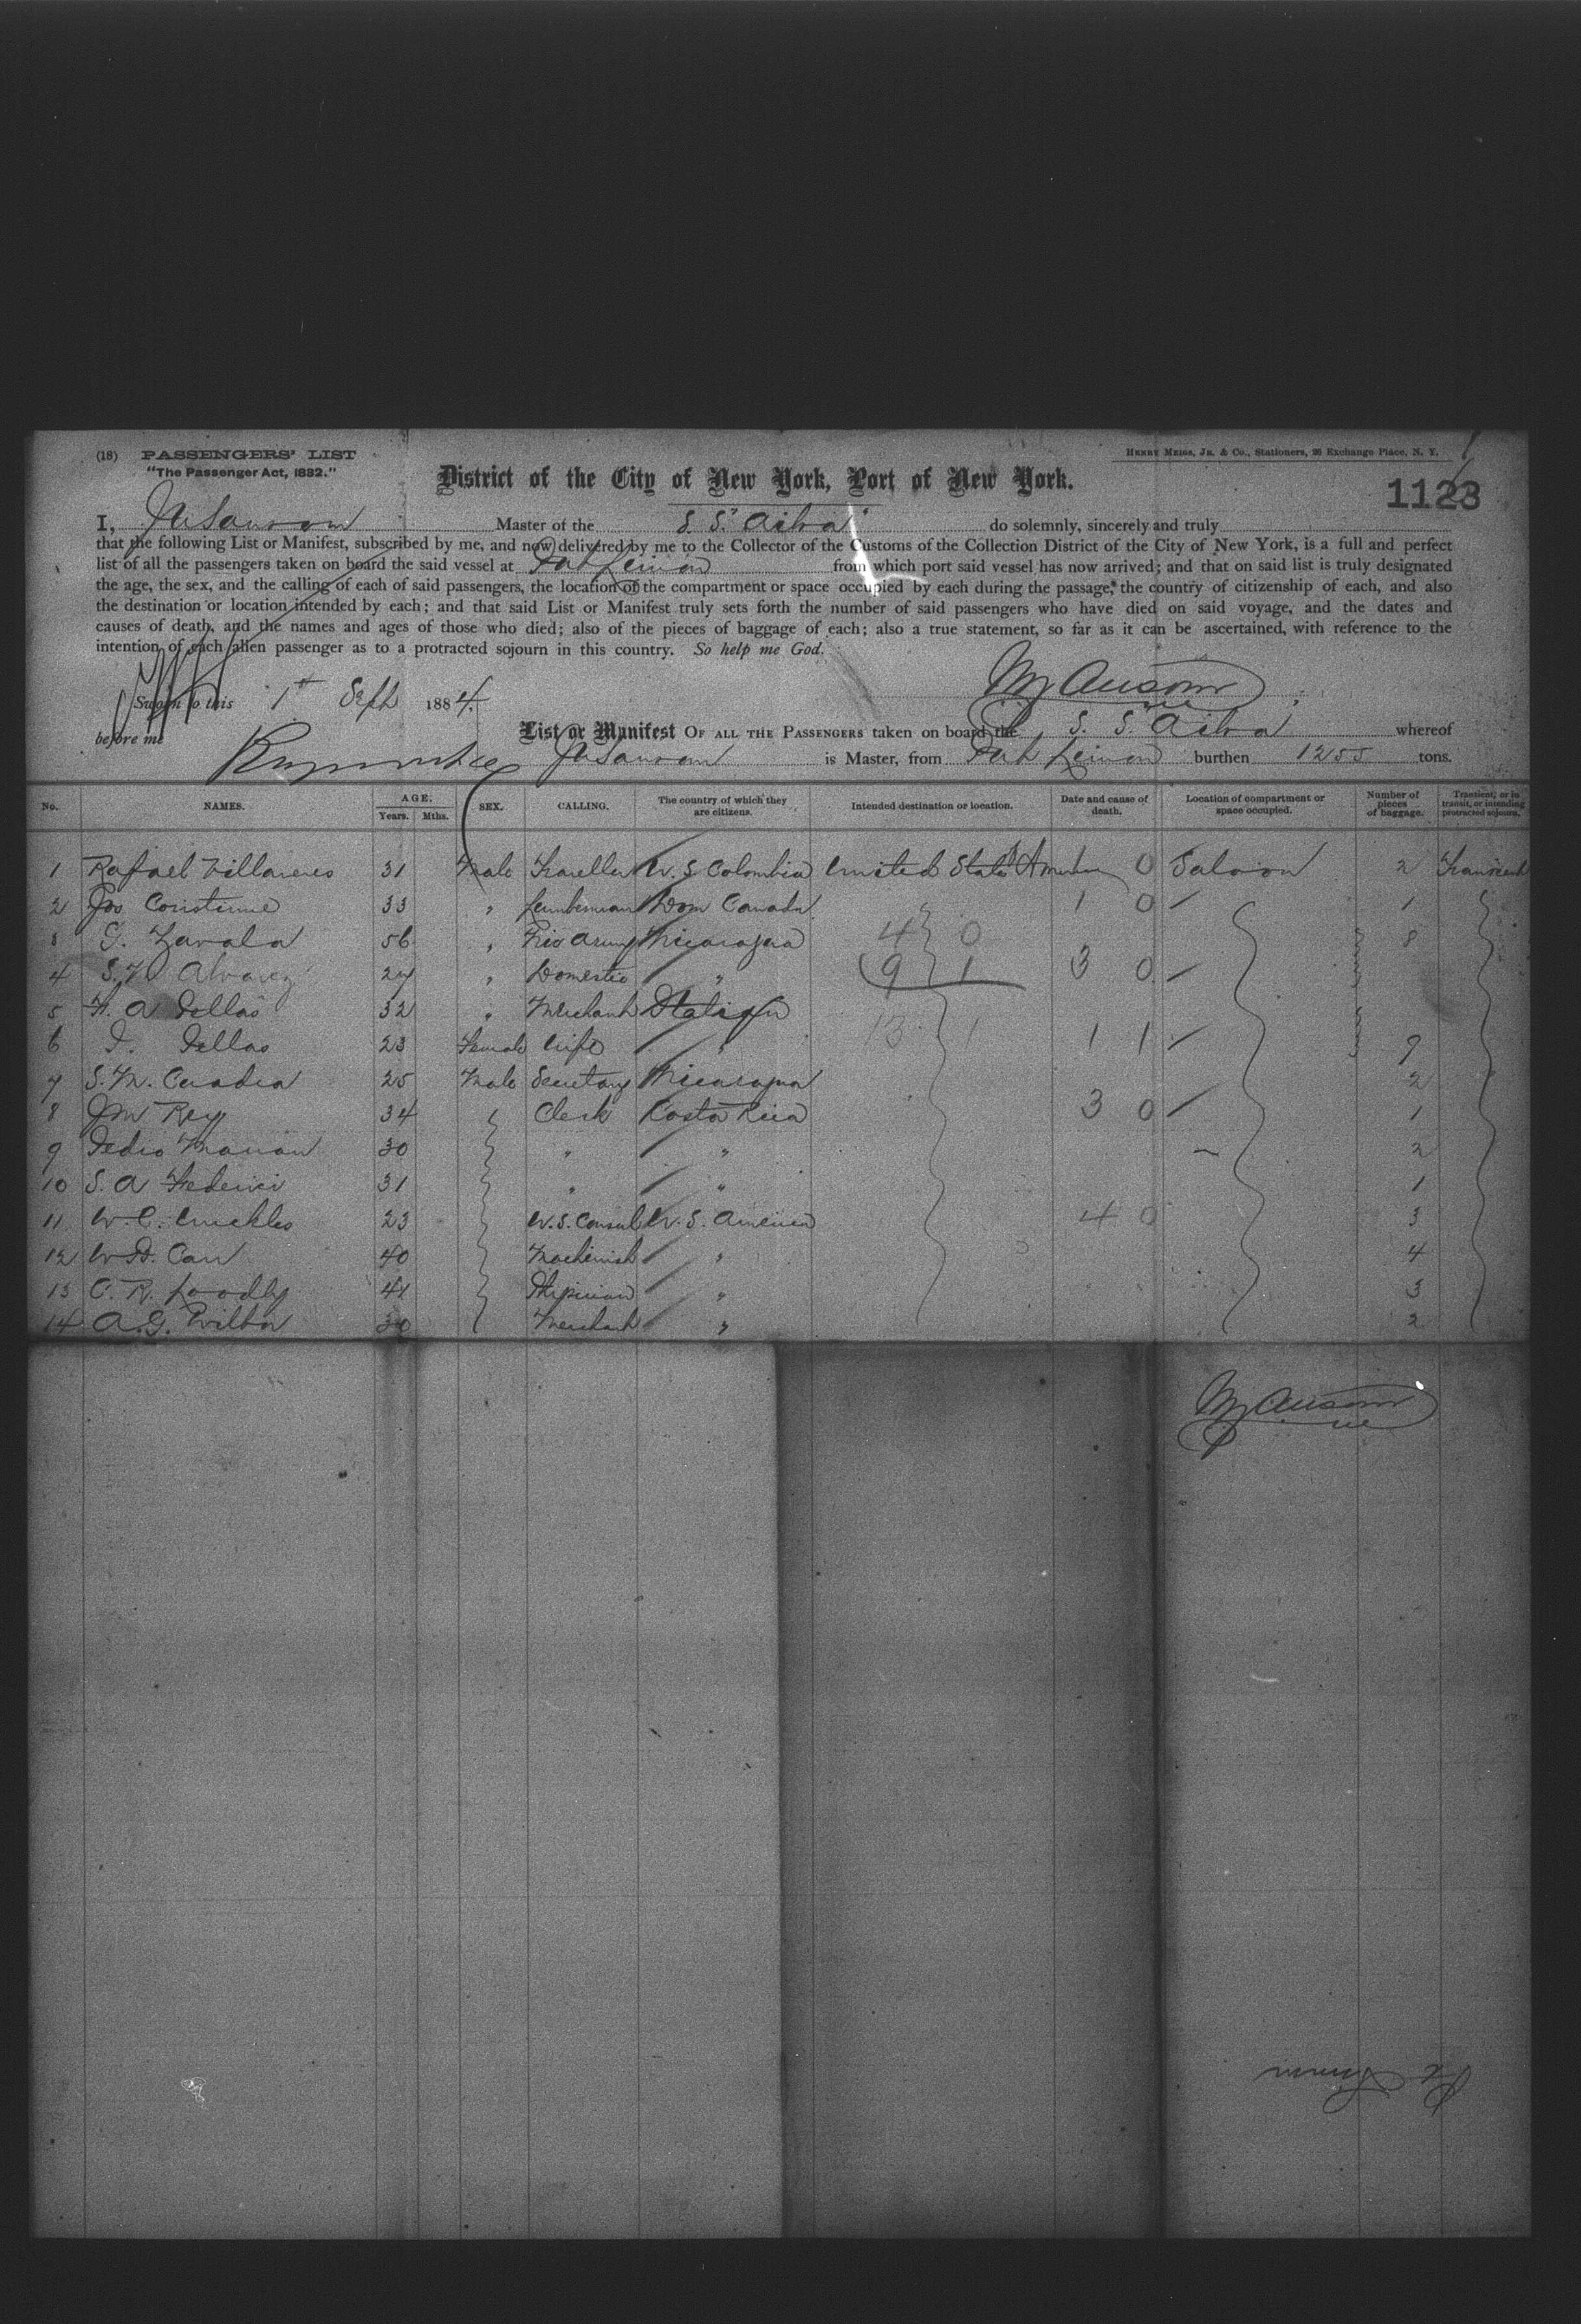 (18) PASSENGERS' LIST
"The Passenger Act, 1882."
HENRY MEIGS, JR. & CO., Stationers, 26 Exchange Place, N. Y.
District of the City of New York, Port of New York.
1123
I, Master of the S. S. do solemnly, sincerely and truly
that the following List or Manifest, subscribed by me, and now delivered by me to the Collector of the Customs of the Collection District of the City of New York, is a full and perfect
list of all the passengers taken on board the said vessel at Port Limon from which port said vessel has now arrived; and that on said list is truly designated
the age, the sex, and the calling of each of said passengers, the location of the compartment or space occupied by each during the passage, the country of citizenship of each, and also
the destination or location intended by each; and that said List or Manifest truly sets forth the number of said passengers who have died on said voyage, and the dates and
causes of death, and the names and ages of those who died; also of the pieces of baggage of each; also a true statement, so far as it can be ascertained, with reference to the
intention of each alien passenger as to a protracted sojourn in this country. So help me God.
Sworn to this 1st Sept 1884.
before me
List or Manifest OF ALL THE PASSENGERS taken on board the S. S. whereof
is Master, from Port Limon burthen 1255 tons.
No. NAMES. AGE. Years. Mths. SEX. CALLING. The country of which they are citizens. Intended destination or location. Date and cause of death. Location of compartment or space occupied. Number of pieces of baggage. Transient, or in transit, or intending protracted sojourn.
1 Rafael 31 Male Traveller U. S. Colombia United States America 0 Saloon 2 Transient
2 Jos 33 " Lumberman Dom Canada 1 0 1
3 G. Zavala 56 " Nicaragua 4 0 8
4 Alvarez 27 " Domestic " 9 1 3 0
5 A 32 " Merchant Italian 13 1
6 23 Female Wife " 1 1 9
7 S. M. 25 Male Secretary Nicaragua 2
8 J M Rey 34 Clerk Costa Rica 3 0 1
9 Pedro 30 " " 2
10 S. A Federici 31 " " 1
11 W. C. 23 U. S. Consul U. S. America 4 0 3
12 W D. Carr 40 Machinist " 4
13 C. R. 41 Physician " 3
14 A. G. 30 Merchant " 2